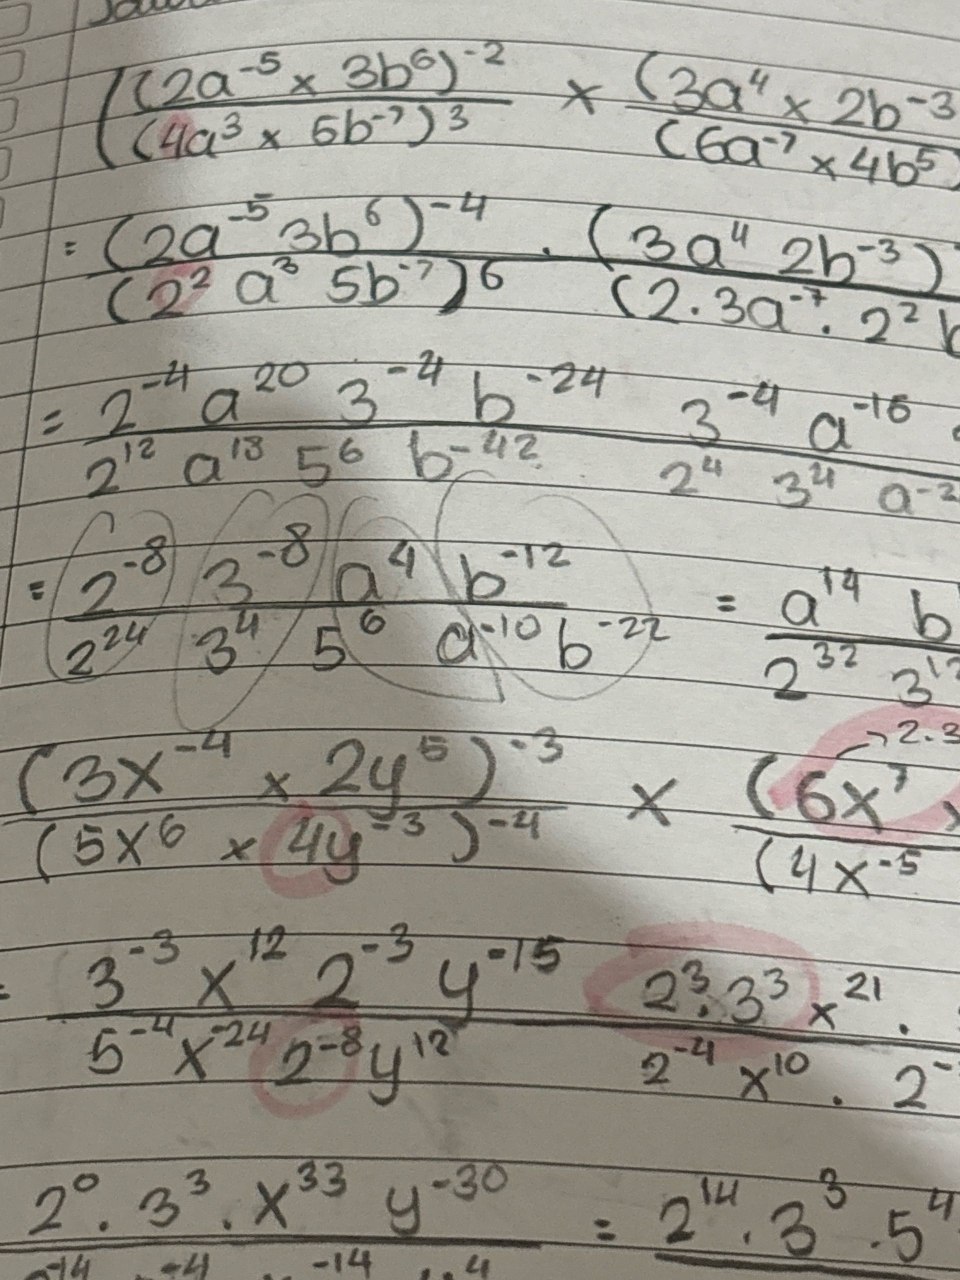 ((2a⁻⁵ × 3b⁶)⁻² / (4a³ × 5b⁻⁷)³ × (3a⁴ × 2b⁻³ / (6a⁻⁷ × 4b⁵)
= (2a⁻⁵ 3b⁶)⁻⁴ / (2² a³ 5b⁻⁷)⁶ · (3a⁴ 2b⁻³) / (2·3a⁻⁷ · 2² b
= 2⁻⁴ a²⁰ 3⁻⁴ b⁻²⁴ / 2¹² a¹⁸ 5⁶ b⁻⁴² 3⁻⁴ a⁻¹⁶ / 2⁴ 3⁴ a⁻²
= 2⁻⁸ 3⁻⁸ a⁴ b⁻¹² / 2²⁴ 3⁴ 5⁶ a⁻¹⁰ b⁻²² = a¹⁴ b / 2³² 3¹²
(3x⁻⁴ × 2y⁵)⁻³ / (5x⁶ × 4y⁻³)⁻⁴ × (6x⁷ / (4x⁻⁵
→2·3
= 3⁻³ x¹² 2⁻³ y⁻¹⁵ / 5⁻⁴ x⁻²⁴ 2⁻⁸ y¹² 2³·3³ x²¹ · / 2⁻⁴ x¹⁰ · 2⁻
2⁰ · 3³ · x³³ y⁻³⁰ = 2¹⁴ · 3³ · 5⁴